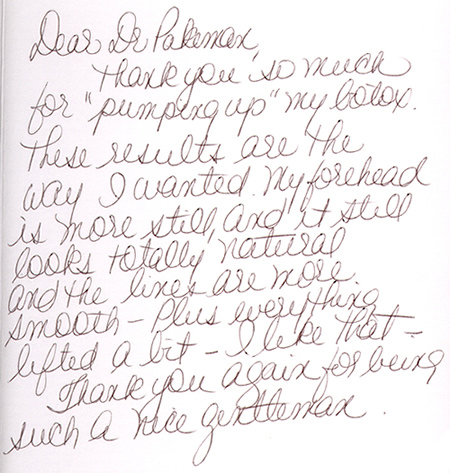 Dear Dr Pakeman,
Thank you so much
for "pumping up" my botox.
These results are the
way I wanted. My forehead
is more still, and it still
looks totally natural
and the lines are more
smooth - Plus everything
lifted a bit - I like that -
Thank you again for being
such a nice gentleman.